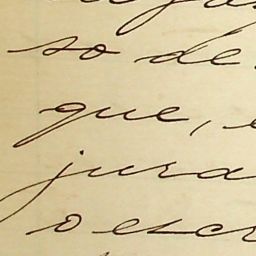 so de
que, e
jura
o escr